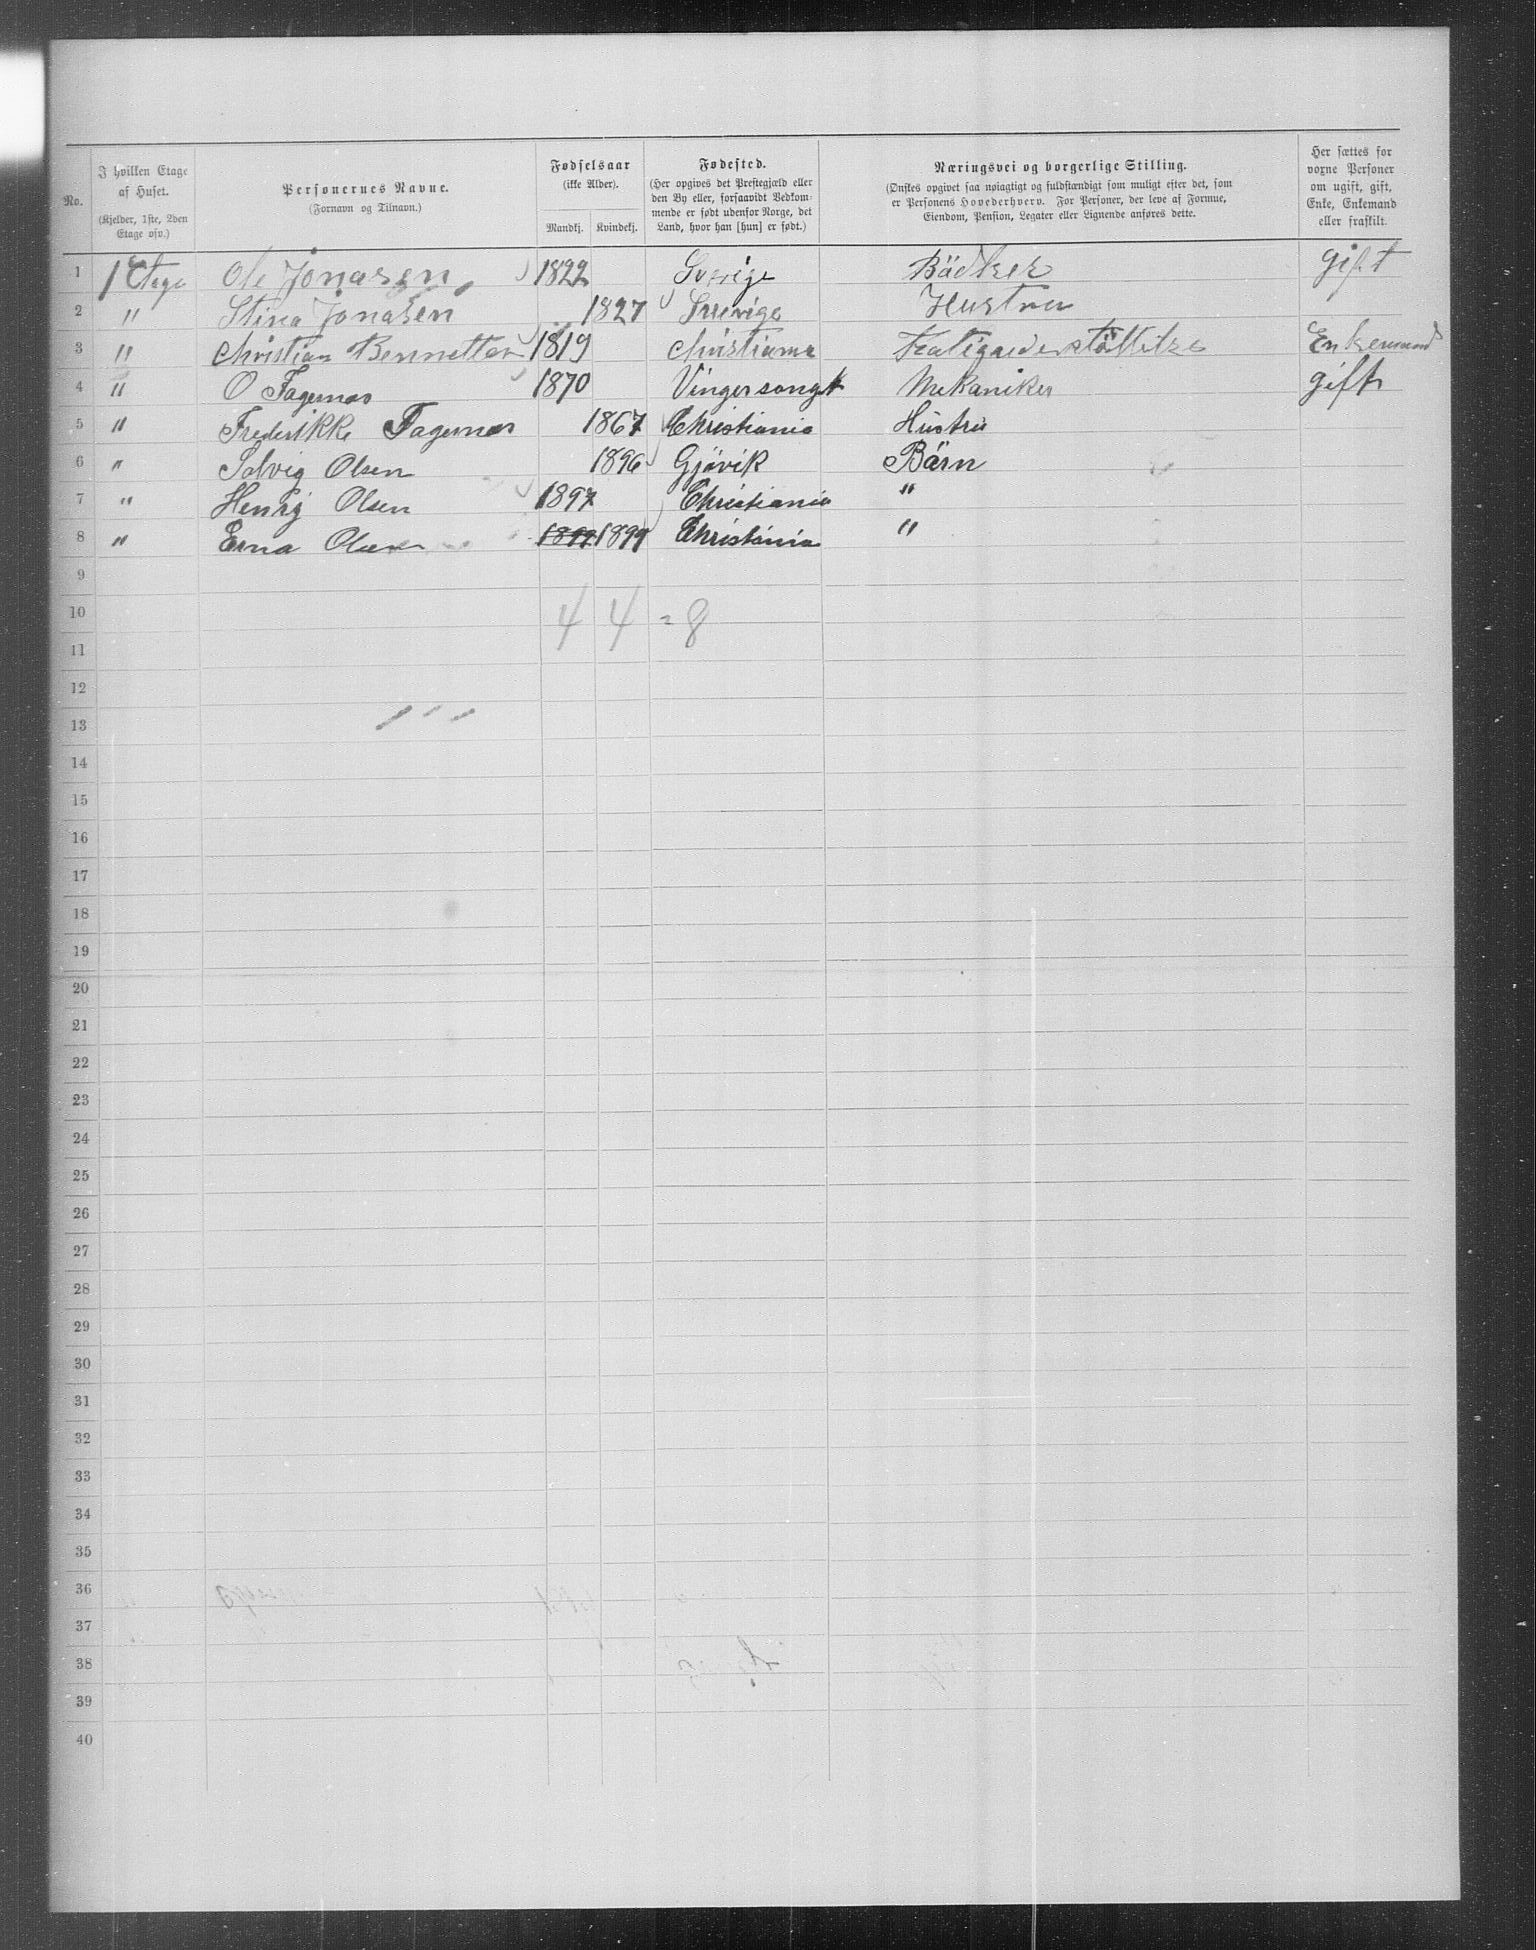 No.
I hvilken Etage af Huset. (Kjelder, 1ste, 2den Etage osv.)
Personernes Navne. (Fornavn og Tilnavn.)
Fødselsaar (ikke Alder). Mandkj. Kvindekj.
Fødested. (Her opgives det Prestegjæld eller den By eller, forsaavidt Vedkommende er født udenfor Norge, det Land, hvor han [hun] er født.)
Næringsvei og borgerlige Stilling. (Ønskes opgivet saa nøiagtigt og fuldstændigt som muligt efter det, som er Personens Hovederhverv. For Personer, der leve af Formue, Eiendom, Pension, Legater eller Lignende anføres dette.)
Her sættes for voxne Personer om ugift, gift, Enke, Enkemand eller fraskilt.
1 1 Etage Ole Jonasen 1822 Sverige Bädker gift
2 " Stina Jonasen 1827 Sverige Hustru
3 " Christian Bennetter 1819 Christiania Enkemand
4 " O Fagernas 1870 Vinger Mekaniker gift
5 " Frederikke Fagernas 1867 Christiania Hustru
6 " Solvig Olsen 1896 Gjövik Bärn
7 " Henry Olsen 1897 Christiania "
8 " Erna Olsen 1899 1899 Christiania "
9
10 4 4 = 8
11
12
13
14
15
16
17
18
19
20
21
22
23
24
25
26
27
28
29
30
31
32
33
34
35
36
37
38
39
40